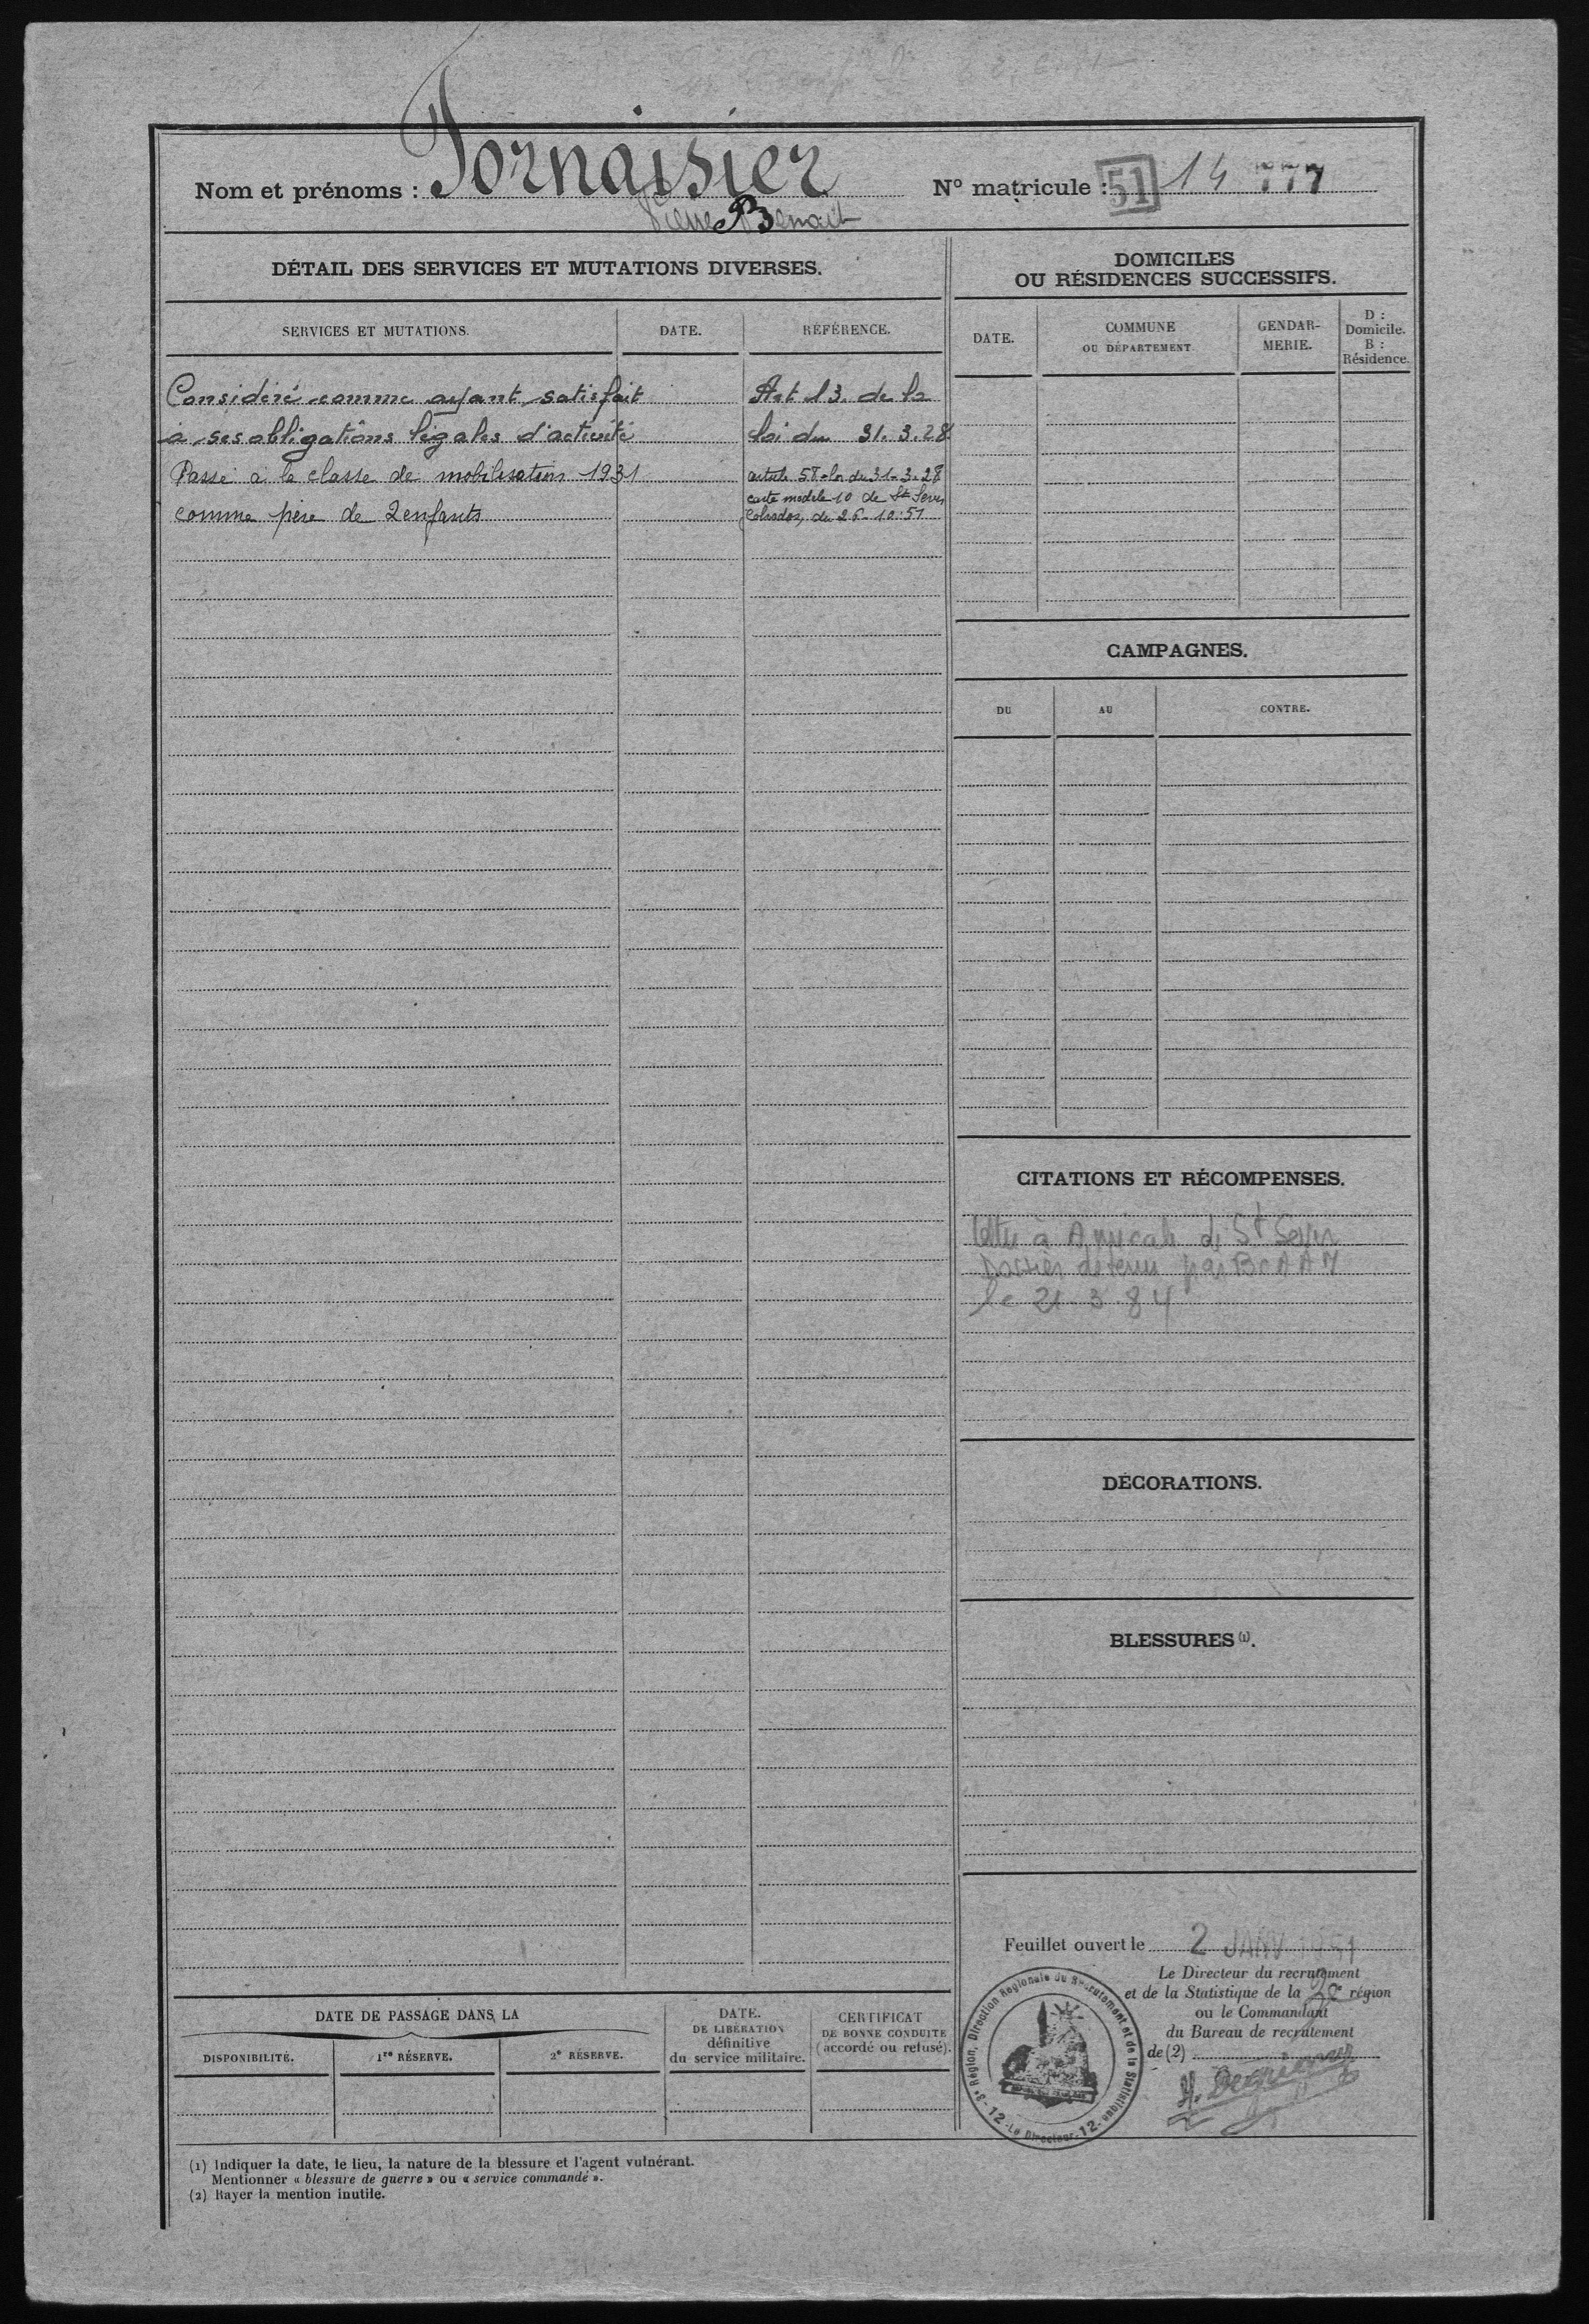 Nom et prénoms : Fornaisier
Pierre Benoit
N° matricule : 51 14 777
DÉTAIL DES SERVICES ET MUTATIONS DIVERSES.
SERVICES ET MUTATIONS. DATE. RÉFÉRENCE.
Considéré comme ayant satisfait Art 13. de la
à ses obligations légales d'activité loi du 31.3.28
Passé à la classe de mobilisation 1931 article 58 loi du 31-3-28
carte modèle 10 de St Sever
comme père de 2 enfants Calvados, du 26-10-51
DOMICILES
OU RÉSIDENCES SUCCESSIFS.
DATE. COMMUNE OU DÉPARTEMENT GENDAR-MERIE. D : Domicile. B : Résidence.
CAMPAGNES.
DU AU CONTRE.
CITATIONS ET RÉCOMPENSES.
lettre à Amicale de St Sever
Dossier détenu par BCAAM
le 21-3-84
DÉCORATIONS.
BLESSURES (1).
Feuillet ouvert le 2 JANV 1951
Le Directeur du recrutement
et de la Statistique de la 3e région
ou le Commandant
du Bureau de recrutement
de (2)
3e Région, Direction Régionale du Recrutement et de la Statistique
-12- Le Directeur -12-
DATE DE PASSAGE DANS LA
DISPONIBILITÉ. 1re RÉSERVE. 2e RÉSERVE.
DATE.
DE LIBÉRATION
définitive
du service militaire.
CERTIFICAT
DE BONNE CONDUITE
(accordé ou refusé).
(1) Indiquer la date, le lieu, la nature de la blessure et l'agent vulnérant.
Mentionner « blessure de guerre » ou « service commandé ».
(2) Rayer la mention inutile.